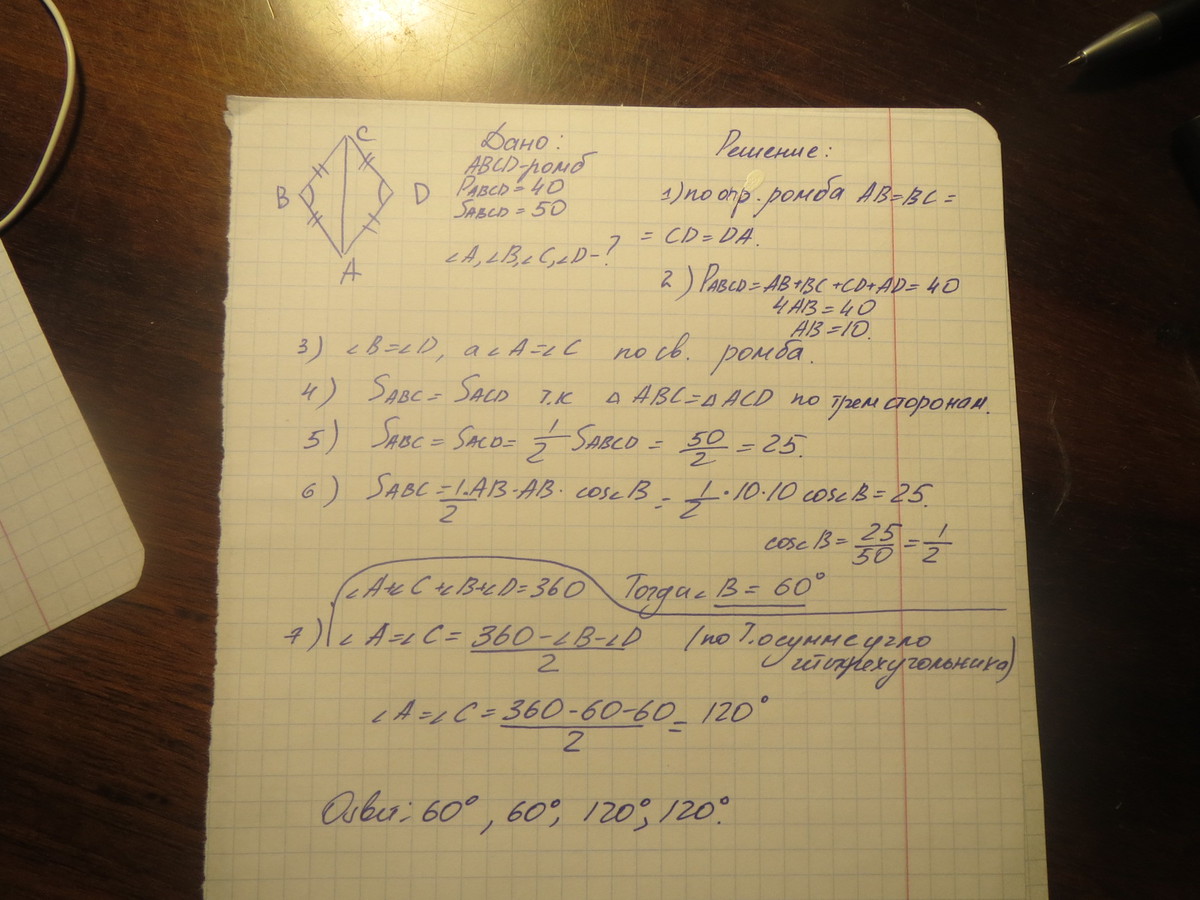 C
B
D
A
Дано:
ABCD-ромб
PABCD = 40
SABCD = 50
∠A, ∠B, ∠C, ∠D - ?
Решение:
1) по опр. ромба AB = BC =
= CD = DA.
2) PABCD = AB + BC + CD + AD = 40
4AB = 40
AB = 10.
3) ∠B = ∠D, а ∠A = ∠C по св. ромба.
4) SABC = SACD т.к △ ABC = △ ACD по трем сторонам.
5) SABC = SACD = 1/2 SABCD = 50/2 = 25.
6) SABC = 1/2 · AB · AB · cos∠B = 1/2 · 10 · 10 cos∠B = 25.
cos∠B = 25/50 = 1/2
∠A + ∠C + ∠B + ∠D = 360 Тогда ∠B = 60°
7) ∠A = ∠C = (360 - ∠B - ∠D)/2 (по Т. о сумме угло
четырехугольника)
∠A = ∠C = (360 - 60 - 60)/2 = 120°
Ответ: 60°, 60°, 120°, 120°.